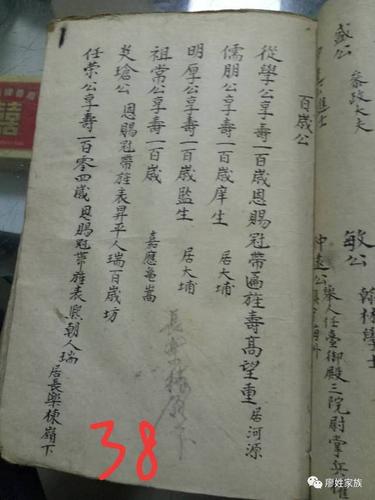 盛公
參政大夫
敏公
翰林學士
百歲公
從學公享壽一百歲恩賜冠帶匾旌壽高望重 居河源
儒朋公享壽一百歲庠生 居大埔
明厚公享壽一百歲監生 居大埔
祖常公享壽一百歲 嘉應
公恩賜冠帶旌表昇平人瑞百歲坊
任榮公享壽一百零四歲恩賜冠帶旌表熙朝人瑞 居長樂棟嶺下
長樂棟嶺下
38
廖姓家族